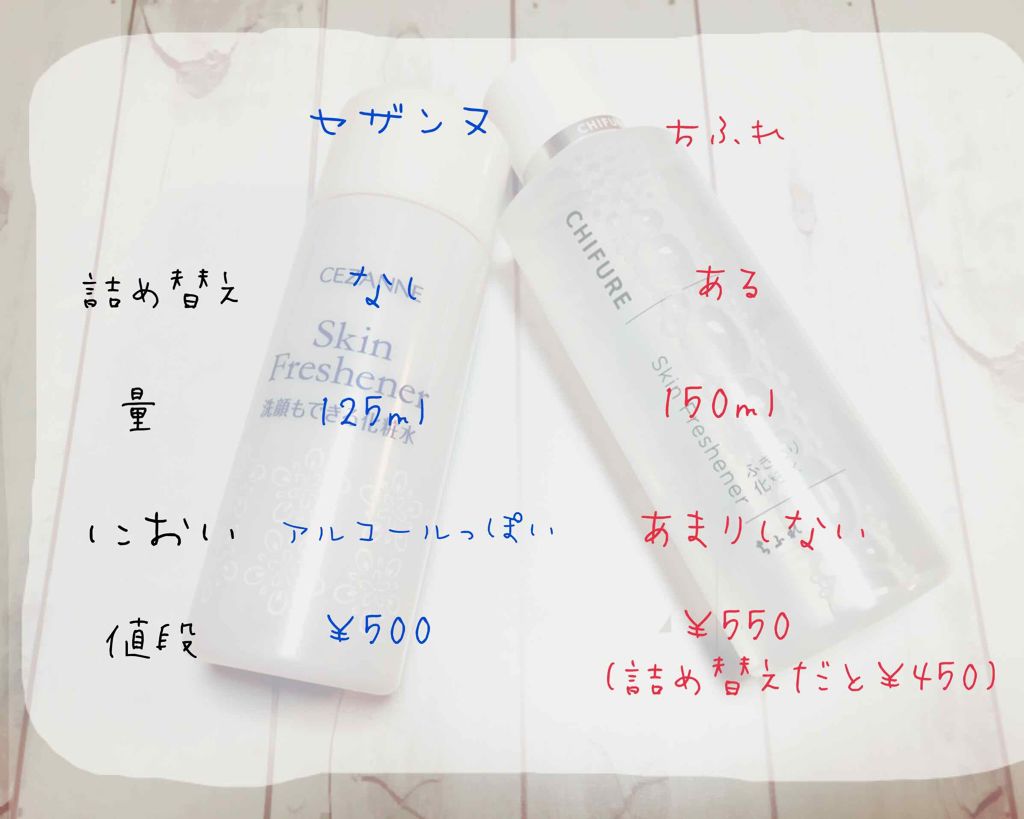 セザンヌ
ちふれ
CHIFURE
詰め替え
なし
ある
量
125ml
150ml
におい
アルコールっぽい
あまりしない
値段
¥500
¥550
(詰め替えだと¥450)
CEZANNE
Skin
Freshener
洗顔もできる化粧水
CHIFURE
Skin Freshener
ふきとり
化粧水
ちふれ